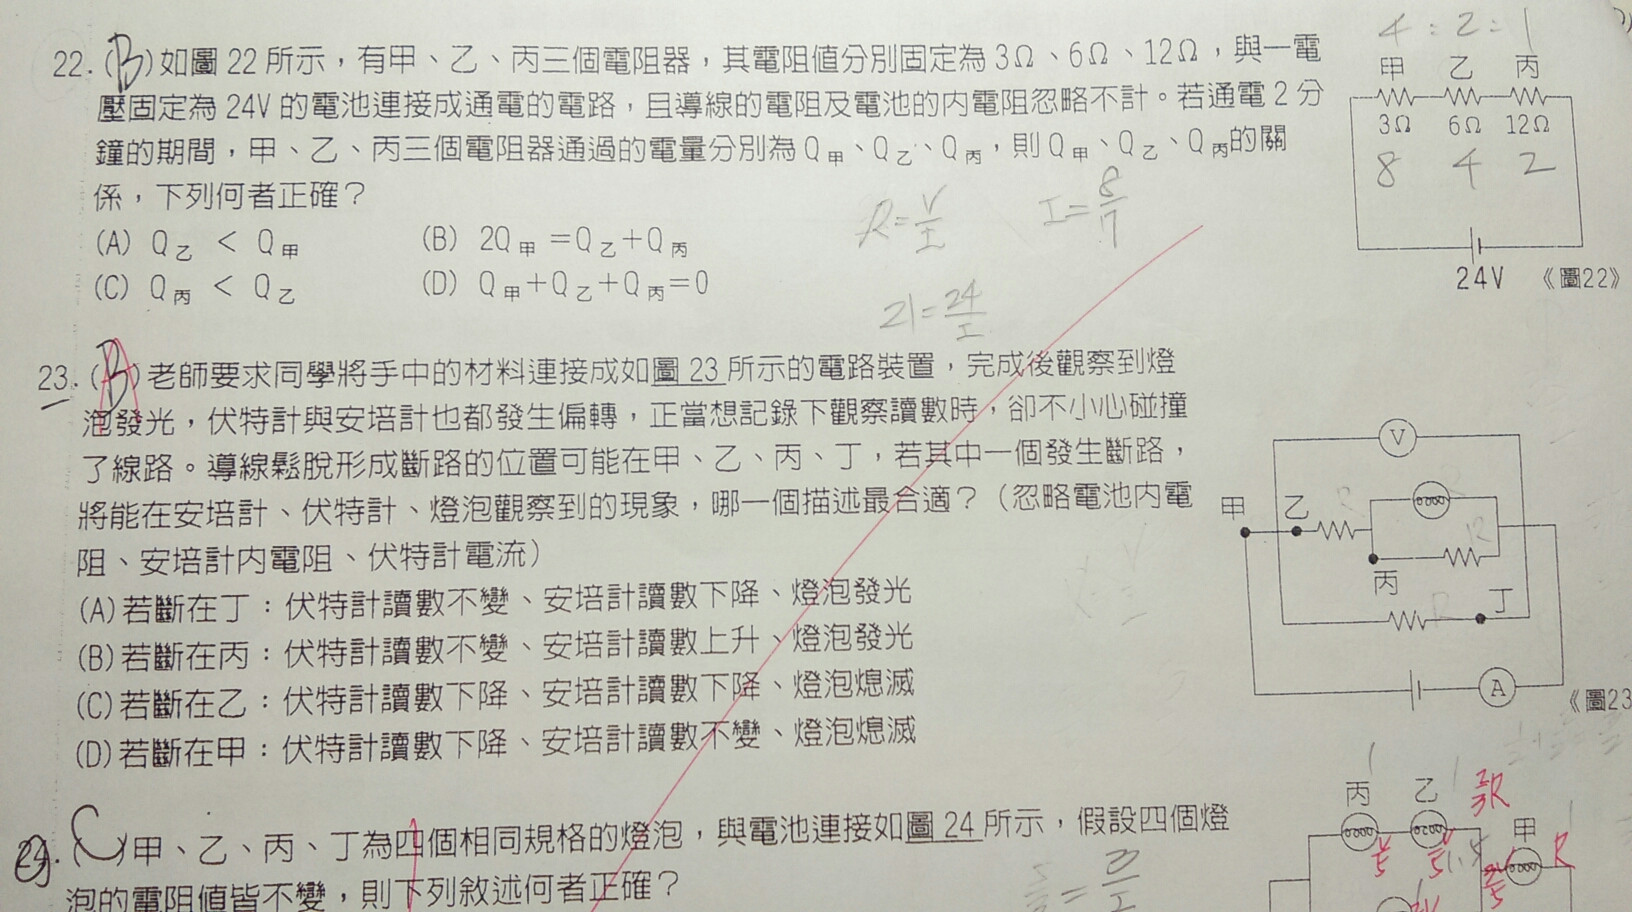 4 : 2 : 1
22. (B)如圖 22 所示，有甲、乙、丙三個電阻器，其電阻值分別固定為 3Ω、6Ω、12Ω，與一電
壓固定為 24V 的電池連接成通電的電路，且導線的電阻及電池的內電阻忽略不計。若通電 2 分
鐘的期間，甲、乙、丙三個電阻器通過的電量分別為 Q甲、Q乙、Q丙，則 Q甲、Q乙、Q丙的關
係，下列何者正確？
(A) Q乙 < Q甲
(B) 2Q甲 =Q乙+Q丙
(C) Q丙 < Q乙
(D) Q甲+Q乙+Q丙=0
甲 乙 丙
3Ω 6Ω 12Ω
8 4 2
24V 《圖22》
R=V/I
I=8/7
21=24/I
23. (B)老師要求同學將手中的材料連接成如圖 23 所示的電路裝置，完成後觀察到燈
泡發光，伏特計與安培計也都發生偏轉，正當想記錄下觀察讀數時，卻不小心碰撞
了線路。導線鬆脫形成斷路的位置可能在甲、乙、丙、丁，若其中一個發生斷路，
將能在安培計、伏特計、燈泡觀察到的現象，哪一個描述最合適？（忽略電池內電
阻、安培計內電阻、伏特計電流）
(A)若斷在丁：伏特計讀數不變、安培計讀數下降、燈泡發光
(B)若斷在丙：伏特計讀數不變、安培計讀數上升、燈泡發光
(C)若斷在乙：伏特計讀數下降、安培計讀數下降、燈泡熄滅
(D)若斷在甲：伏特計讀數下降、安培計讀數不變、燈泡熄滅
V
甲 乙 R
R
丙
R 丁
A
《圖23
24. (C)甲、乙、丙、丁為四個相同規格的燈泡，與電池連接如圖 24 所示，假設四個燈
泡的電阻值皆不變，則下列敘述何者正確？
丙 乙
甲 R